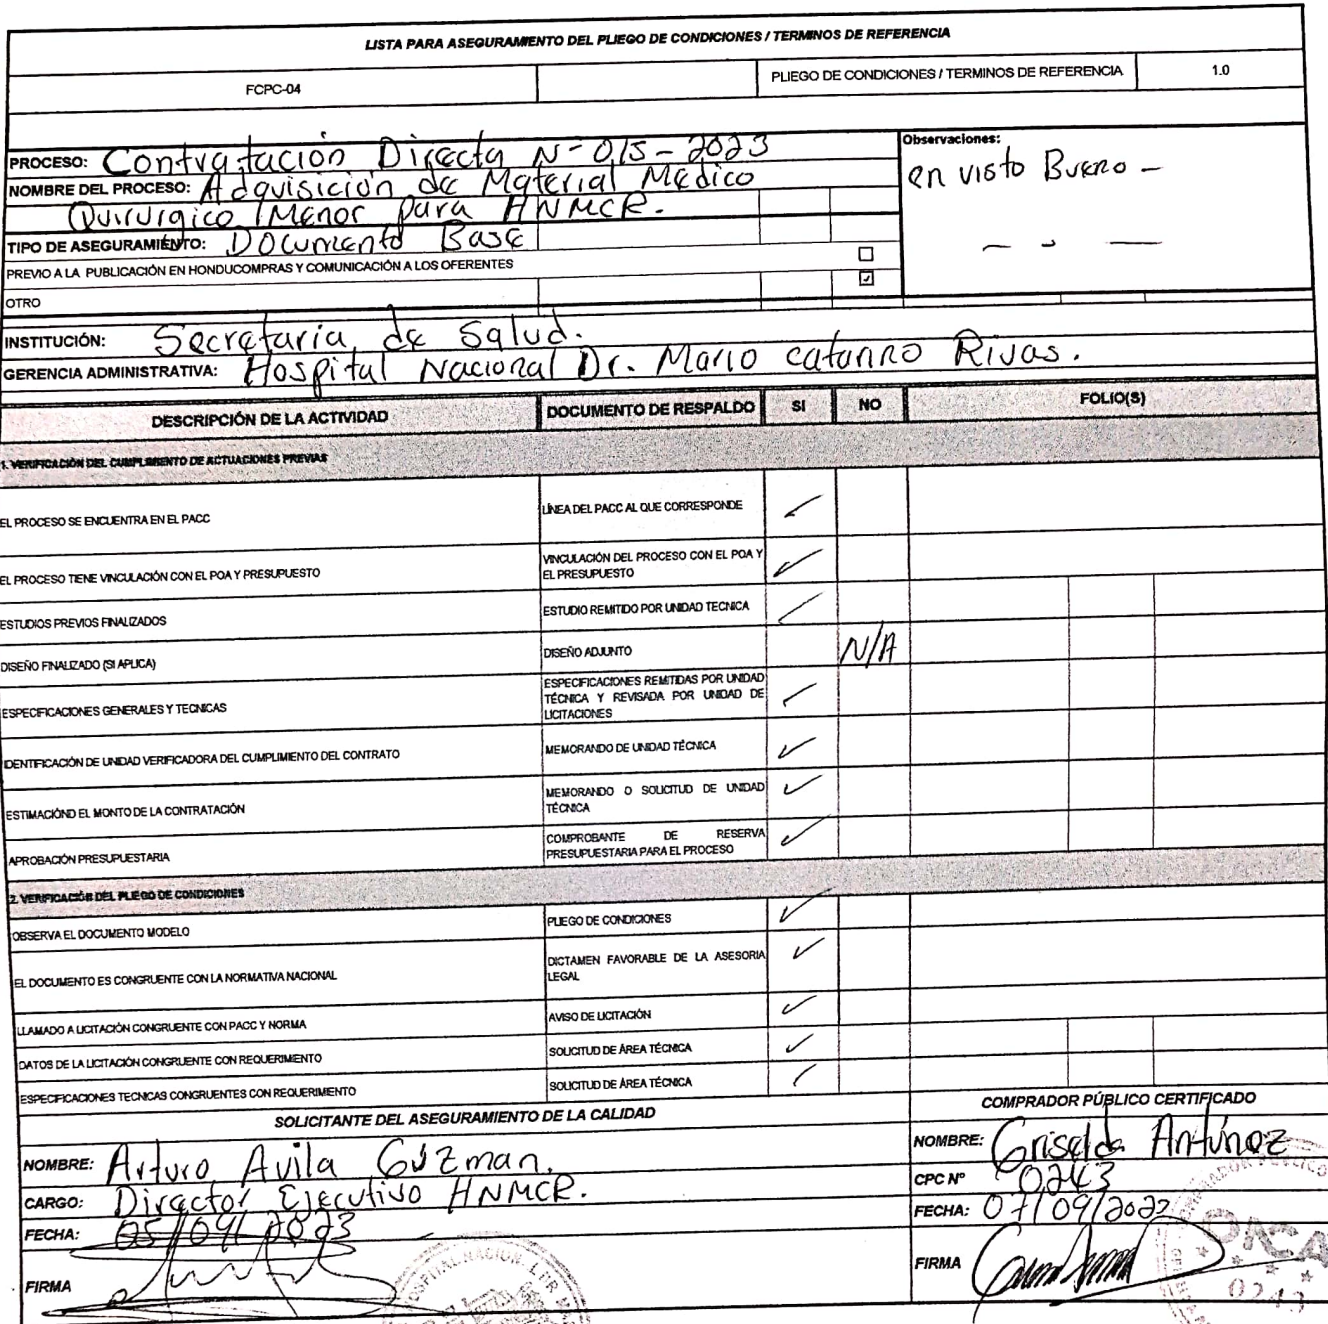 LISTA PARA ASEGURAMIENTO DEL PLIEGO DE CONDICIONES / TERMINOS DE REFERENCIA
FCPC-04 PLIEGO DE CONDICIONES / TERMINOS DE REFERENCIA 1.0
PROCESO: Contratación Directa N- 015-2023
NOMBRE DEL PROCESO: Adquisición de Material Médico
Quirurgico Menor para HNMCR.
TIPO DE ASEGURAMIENTO: Documento Base
PREVIO A LA PUBLICACIÓN EN HONDUCOMPRAS Y COMUNICACIÓN A LOS OFERENTES
OTRO
Observaciones:
en visto Bueno -
INSTITUCIÓN: Secretaria de Salud.
GERENCIA ADMINISTRATIVA: Hospital Nacional Dr. Mario catarino Rivas.
DESCRIPCIÓN DE LA ACTIVIDAD DOCUMENTO DE RESPALDO SI NO FOLIO(S)
1. VERIFICACIÓN DEL CUMPLIMIENTO DE ACTUACIONES PREVIAS
EL PROCESO SE ENCUENTRA EN EL PACC LÍNEA DEL PACC AL QUE CORRESPONDE ✓
EL PROCESO TIENE VINCULACIÓN CON EL POA Y PRESUPUESTO VINCULACIÓN DEL PROCESO CON EL POA Y
EL PRESUPUESTO ✓
ESTUDIOS PREVIOS FINALIZADOS ESTUDIO REMITIDO POR UNIDAD TECNICA ✓
DISEÑO FINALIZADO (SI APLICA) DISEÑO ADJUNTO N/A
ESPECIFICACIONES GENERALES Y TECNICAS ESPECIFICACIONES REMITIDAS POR UNIDAD
TÉCNICA Y REVISADA POR UNIDAD DE
LICITACIONES ✓
IDENTIFICACIÓN DE UNIDAD VERIFICADORA DEL CUMPLIMIENTO DEL CONTRATO MEMORANDO DE UNIDAD TÉCNICA ✓
ESTIMACIÓND EL MONTO DE LA CONTRATACIÓN MEMORANDO O SOLICITUD DE UNIDAD
TÉCNICA ✓
APROBACIÓN PRESUPUESTARIA COMPROBANTE DE RESERVA
PRESUPUESTARIA PARA EL PROCESO ✓
2. VERIFICACIÓN DEL PLIEGO DE CONDICIONES
OBSERVA EL DOCUMENTO MODELO PLIEGO DE CONDICIONES ✓
EL DOCUMENTO ES CONGRUENTE CON LA NORMATIVA NACIONAL DICTAMEN FAVORABLE DE LA ASESORIA
LEGAL ✓
LLAMADO A LICITACIÓN CONGRUENTE CON PACC Y NORMA AVISO DE LICITACIÓN ✓
DATOS DE LA LICITACIÓN CONGRUENTE CON REQUERIMIENTO SOLICITUD DE ÁREA TÉCNICA ✓
ESPECIFICACIONES TECNICAS CONGRUENTES CON REQUERIMENTO SOLICITUD DE ÁREA TÉCNICA ✓
SOLICITANTE DEL ASEGURAMIENTO DE LA CALIDAD
NOMBRE: Arturo Avila Guzman.
CARGO: Director Ejecutivo HNMCR.
FECHA: 05/09/2023
FIRMA
COMPRADOR PÚBLICO CERTIFICADO
NOMBRE: Griselda Antúnez
CPC Nº 0243
FECHA: 07/09/2023
FIRMA
0243